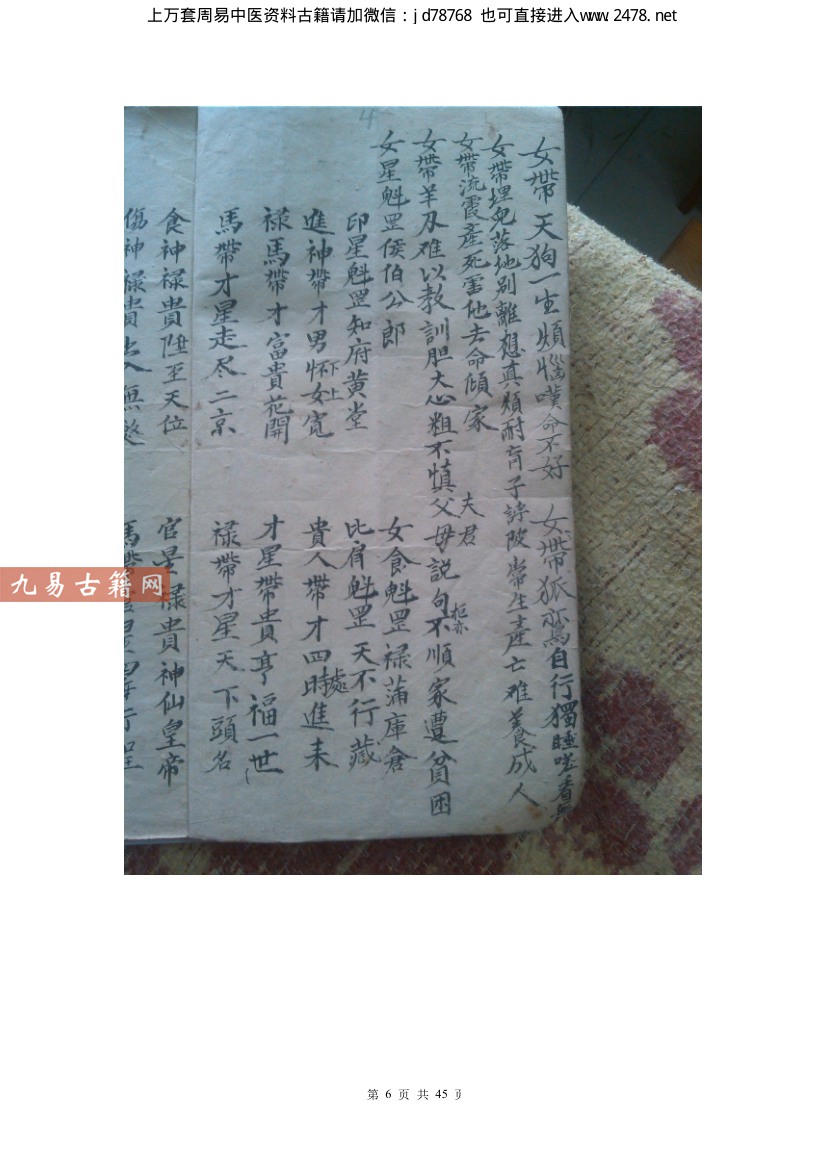 上万套周易中医资料古籍请加微信：jd78768 也可直接进入www.2478.net
4
女帶天狗一生煩惱嘆命不好 女帶狐鸞自行獨睡嗟看
女帶埋兒落地别離想真煩耐育子詩陂常生產亡难養成人
女帶流霞產死害他去命傾家 夫君
女帶羊刃难以教訓胆大心粗不慎父母説句不順家遭貧困
女星魁罡侯伯公郎 女食魁罡禄蒲庫倉
印星魁罡知府黄堂 比肩魁罡天不行藏
進神帶才男怀女寬 下上 貴人帶才四時進来 處
禄馬帶才富貴花開 才星帶貴亨福一世
馬帶才星走尽二京 禄帶才星天下頭名
食神禄貴陞至天位 官星禄貴神仙皇帝
傷神禄貴出入無
九易古籍网
第 6 页 共 45 页